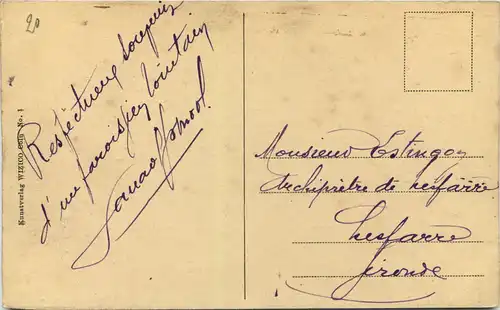 20
Respectueux souvenir
d'un paroissien lointain
Kunstverlag WIZICO Cöln No. 1
Monsieur Estingoy
Archiprêtre de Lesparre
Lesparre
Gironde